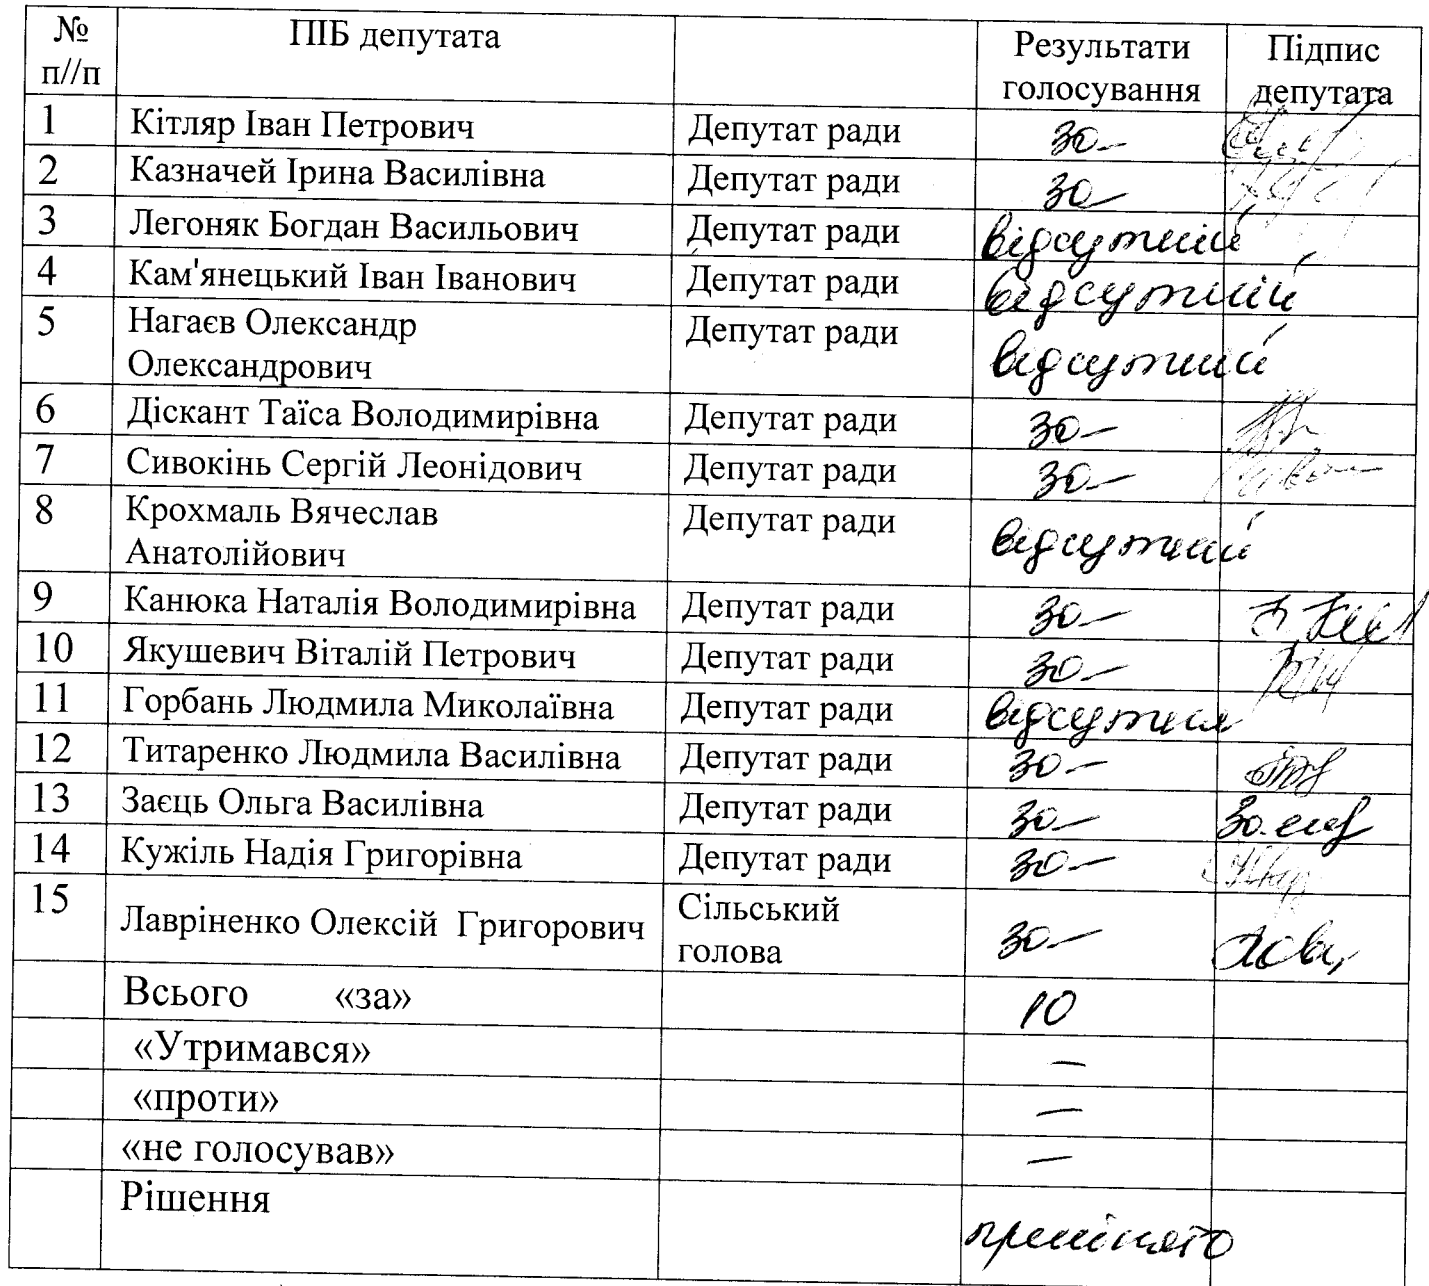 № п//п ПІБ депутата Результати голосування Підпис депутата
1 Кітляр Іван Петрович Депутат ради за
2 Казначей Ірина Василівна Депутат ради за
3 Легоняк Богдан Васильович Депутат ради відсутній
4 Кам'янецький Іван Іванович Депутат ради відсутній
5 Нагаєв Олександр Олександрович Депутат ради відсутній
6 Діскант Таїса Володимирівна Депутат ради за
7 Сивокінь Сергій Леонідович Депутат ради за
8 Крохмаль Вячеслав Анатолійович Депутат ради відсутній
9 Канюка Наталія Володимирівна Депутат ради за
10 Якушевич Віталій Петрович Депутат ради за
11 Горбань Людмила Миколаївна Депутат ради відсутня
12 Титаренко Людмила Василівна Депутат ради за
13 Заєць Ольга Василівна Депутат ради за
14 Кужіль Надія Григорівна Депутат ради за
15 Лавріненко Олексій Григорович Сільський голова за
Всього «за» 10
«Утримався» —
«проти» —
«не голосував» —
Рішення прийнято